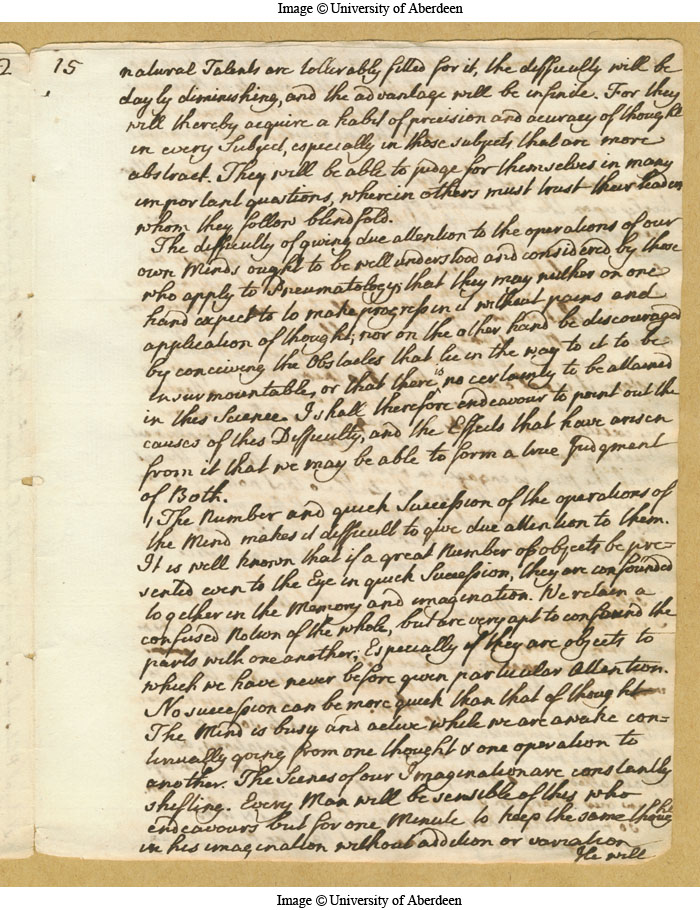 Image © University of Aberdeen
2
15
natural Talents are tollerably fitted for it, the difficulty will be
dayly diminishing, and the advantage will be infinite. For they
will thereby acquire a habit of precision and accuracy of thought
in every Subject, especially in those subjects that are more
abstract. They will be able to judge for themselves in many
important questions, wherein others must trust their leaders
whom they follow blindfold.
The difficulty of giving due attention to the operations of our
own Minds ought to be well understood and considered by those
who apply to Pneumatology; that they may neither on one
hand expect to to make progress in it without pains and
application of thought; nor on the other hand be discouraged
by conceiving the Obstacles that lie in the way to it to be
Insurmountable, or that there is no certainty to be attained
in this Science. I shall therefore endeavour to point out the
causes of this Difficulty, and the Effects that have arisen
from it that we may be able to form a true Judgment
of Both.
1 The Number and quick Succession of the operations of
the Mind makes it difficult to give due attention to them.
It is well known that if a great Number of objects be pre=
sented even to the Eye in quick Succession, they are confounded
together in the Memory and imagination. We retain a
confused Notion of the whole, but are very apt to confound the
parts with one another; Especially if they are objects to
which we have never before given particular Attention.
No succession can be more quick than that of thought
The Mind is busy and active while we are awake con=
tinually going from one thought & one operation to
another. The Scenes of our Imagination are constantly
shifting. Every Man will be sensible of this who
endeavours but for one Minute to keep the same thought
in his imagination without addition or variation
He will
Image © University of Aberdeen